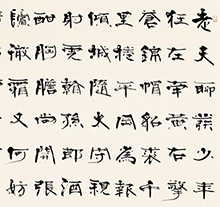 老夫聊發少年
狂左牽黃右擎
蒼錦帽貂裘千
騎卷平岡為報
傾城隨太守親
射虎看孫郎酒
酣胸膽尚開張
鬢微霜又何妨